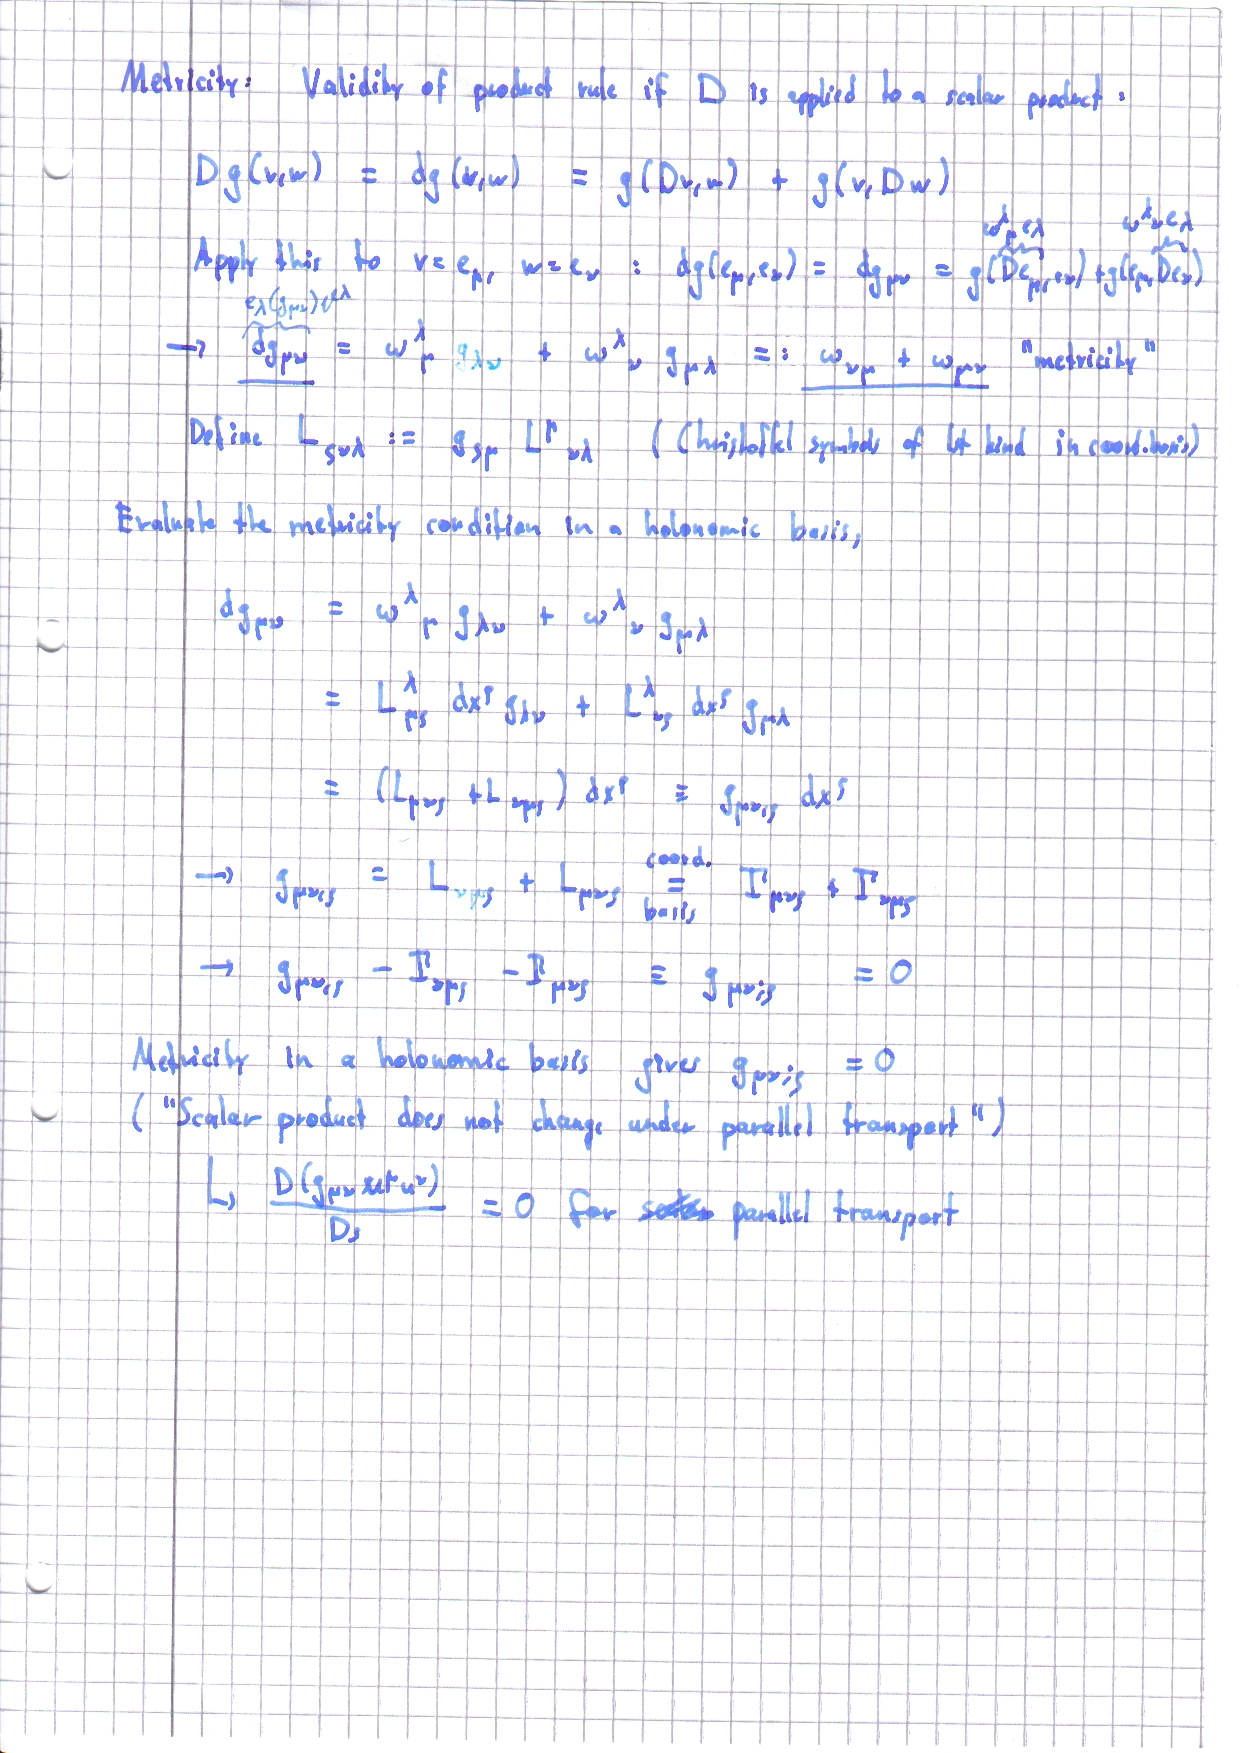 Metricity: Validity of product rule if D is applied to a scalar product:
D g(v,w) = dg(v,w) = g(Dv,w) + g(v,Dw)
ω^λ_μ e_λ ω^λ_ν e_λ
Apply this to v = e_μ, w = e_ν : dg(e_μ,e_ν) = dg_μν = g(De_μ,e_ν) + g(e_μ,De_ν)
e_λ(g_μν) ϑ^λ
→ dg_μν = ω^λ_μ g_λν + ω^λ_ν g_μλ =: ω_νμ + ω_μν "metricity"
Define L_ρνλ := g_ρμ L^μ_νλ (Christoffel symbols of 1st kind in coord. basis)
Evaluate the metricity condition in a holonomic basis,
dg_μν = ω^λ_μ g_λν + ω^λ_ν g_μλ
= L^λ_μρ dx^ρ g_λν + L^λ_νρ dx^ρ g_μλ
= (L_μνρ + L_νμρ) dx^ρ ≡ g_μν,ρ dx^ρ
→ g_μν,ρ = L_νμρ + L_μνρ coord. = basis Γ_μνρ + Γ_νμρ
→ g_μν,ρ - Γ_νμρ - Γ_μνρ ≡ g_μν;ρ = 0
Metricity in a holonomic basis gives g_μν;ρ = 0
("Scalar product does not change under parallel transport")
↳ D(g_μν u^μ u^ν)/Ds = 0 for parallel transport